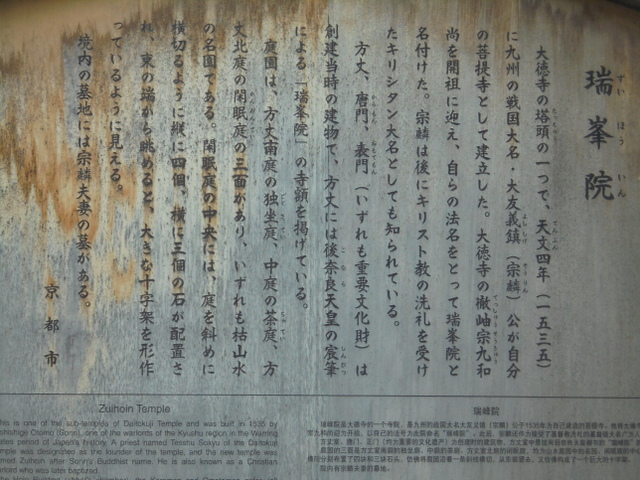 瑞峯院
ずい ほう いん
大徳寺の塔頭の一つで、天文四年（一五三五）
に九州の戦国大名・大友義鎮（宗麟）公が自分
の菩提寺として建立した。大徳寺の徹岫宗九和
尚を開祖に迎え、自らの法名をとって瑞峯院と
名付けた。宗麟は後にキリスト教の洗礼を受け
たキリシタン大名としても知られている。
方丈、唐門、表門（いずれも重要文化財）は
創建当時の建物で、方丈には後奈良天皇の宸筆
による「瑞峯院」の寺額を掲げている。
庭園は、方丈南庭の独坐庭、中庭の茶庭、方
丈北庭の閑眠庭の三面があり、いずれも枯山水
の名園である。閑眠庭の中央には、庭を斜めに
横切るように縦に四個、横に三個の石が配置さ
れ、東の端から眺めると、大きな十字架を形作
っているように見える。
境内の墓地には宗麟夫妻の墓がある。
京都市
Zuihoin Temple
his is one of the sub-temples of Daitokuji Temple and was built in 1535 by
oshishige Otomo (Sorin), one of the warlords of the Kyushu region in the Warring
ates period of Japan's history. A priest named Tesshu Sokyu of the Daitokuji
mple was designated as the founder of the temple, and the new temple was
med Zuihoin after Sorin's Buddhist name. He is also known as a Christian
arlord who was later baptized.
瑞峰院